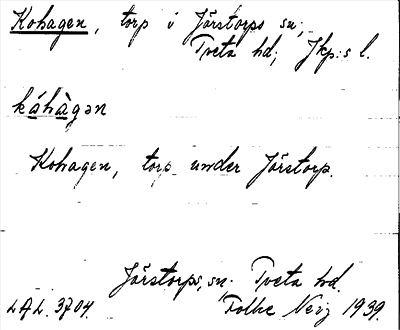 Kohagen, torp i Järstorps sn;
Tveta hd; Jkp:s l.
káhàgən
Kohagen, torp under Järstorp.
Järstorps, sn. Tveta hd.
LAL. 3704. Folke Neij 1939.